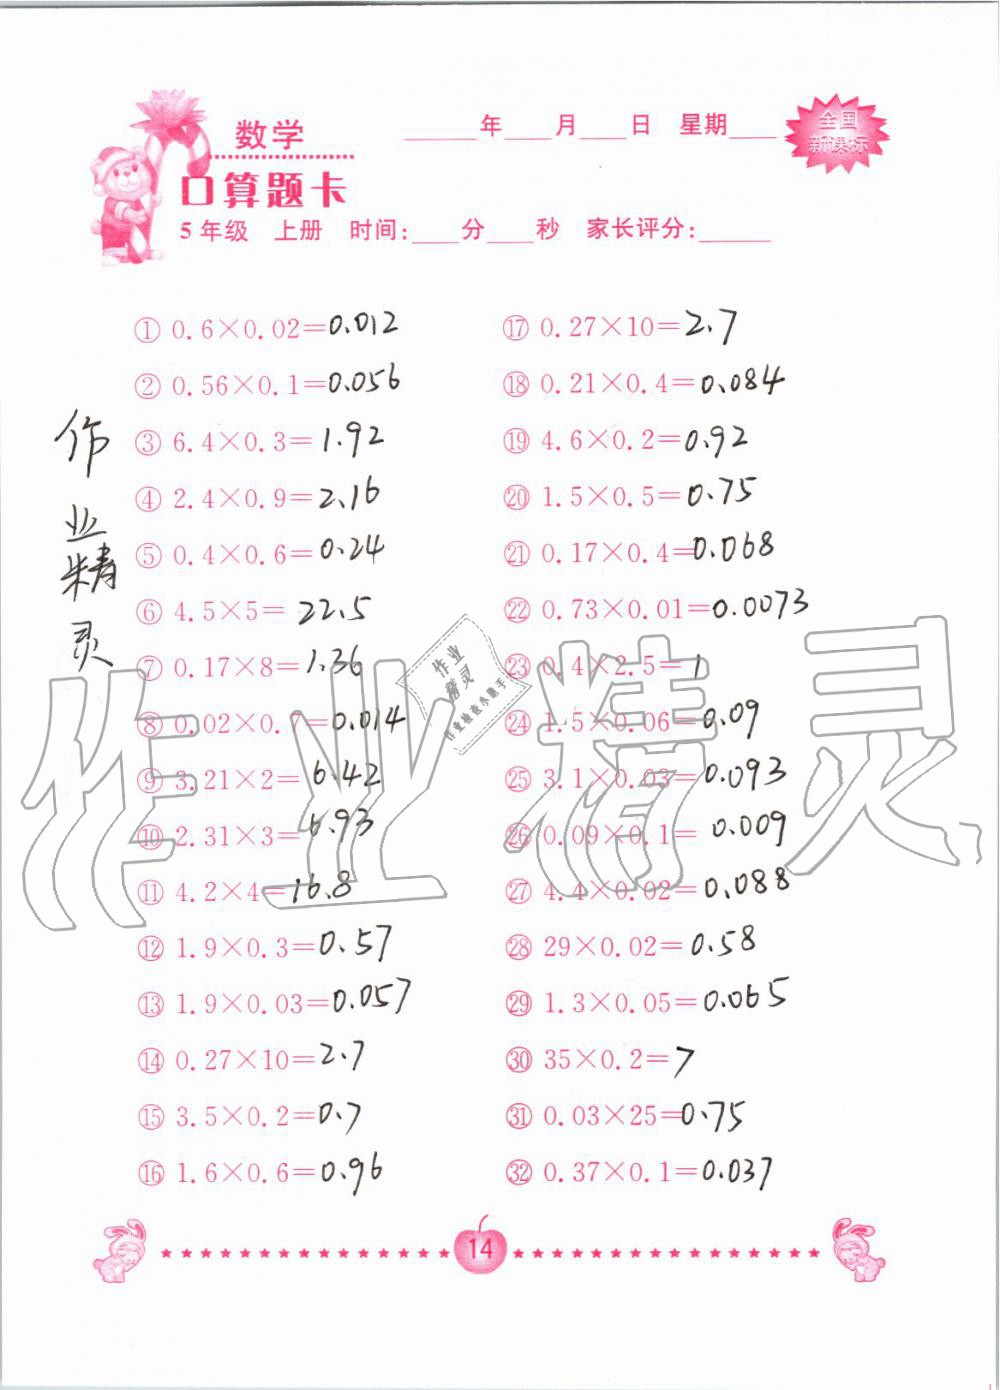 数学
____年____月____日 星期____
全国
新课标
口算题卡
5年级 上册 时间:____分____秒 家长评分:______
① 0.6×0.02=0.012
② 0.56×0.1=0.056
③ 6.4×0.3=1.92
④ 2.4×0.9=2.16
⑤ 0.4×0.6=0.24
⑥ 4.5×5=22.5
⑦ 0.17×8=1.36
⑧ 0.02×0. =0.014
⑨ 3.21×2=6.42
⑩ 2.31×3=6.93
⑪ 4.2×4=16.8
⑫ 1.9×0.3=0.57
⑬ 1.9×0.03=0.057
⑭ 0.27×10=2.7
⑮ 3.5×0.2=0.7
⑯ 1.6×0.6=0.96
⑰ 0.27×10=2.7
⑱ 0.21×0.4=0.084
⑲ 4.6×0.2=0.92
⑳ 1.5×0.5=0.75
㉑ 0.17×0.4=0.068
㉒ 0.73×0.01=0.0073
㉓ 0.4×2.5=1
㉔ 1.5×0.06=0.09
㉕ 3.1×0.03=0.093
㉖ 0.09×0.1=0.009
㉗ 4.4×0.02=0.088
㉘ 29×0.02=0.58
㉙ 1.3×0.05=0.065
㉚ 35×0.2=7
㉛ 0.03×25=0.75
㉜ 0.37×0.1=0.037
作业精灵
作业精灵
作业
精灵
作业检查小助手
14